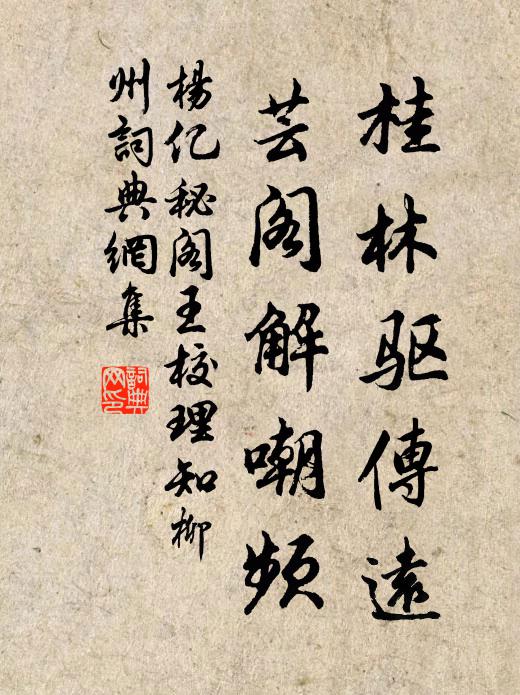 桂林驱傳遠
芸阁解嘲频
楊亿秘阁王校理知柳
州詞典網集
詞典
网印